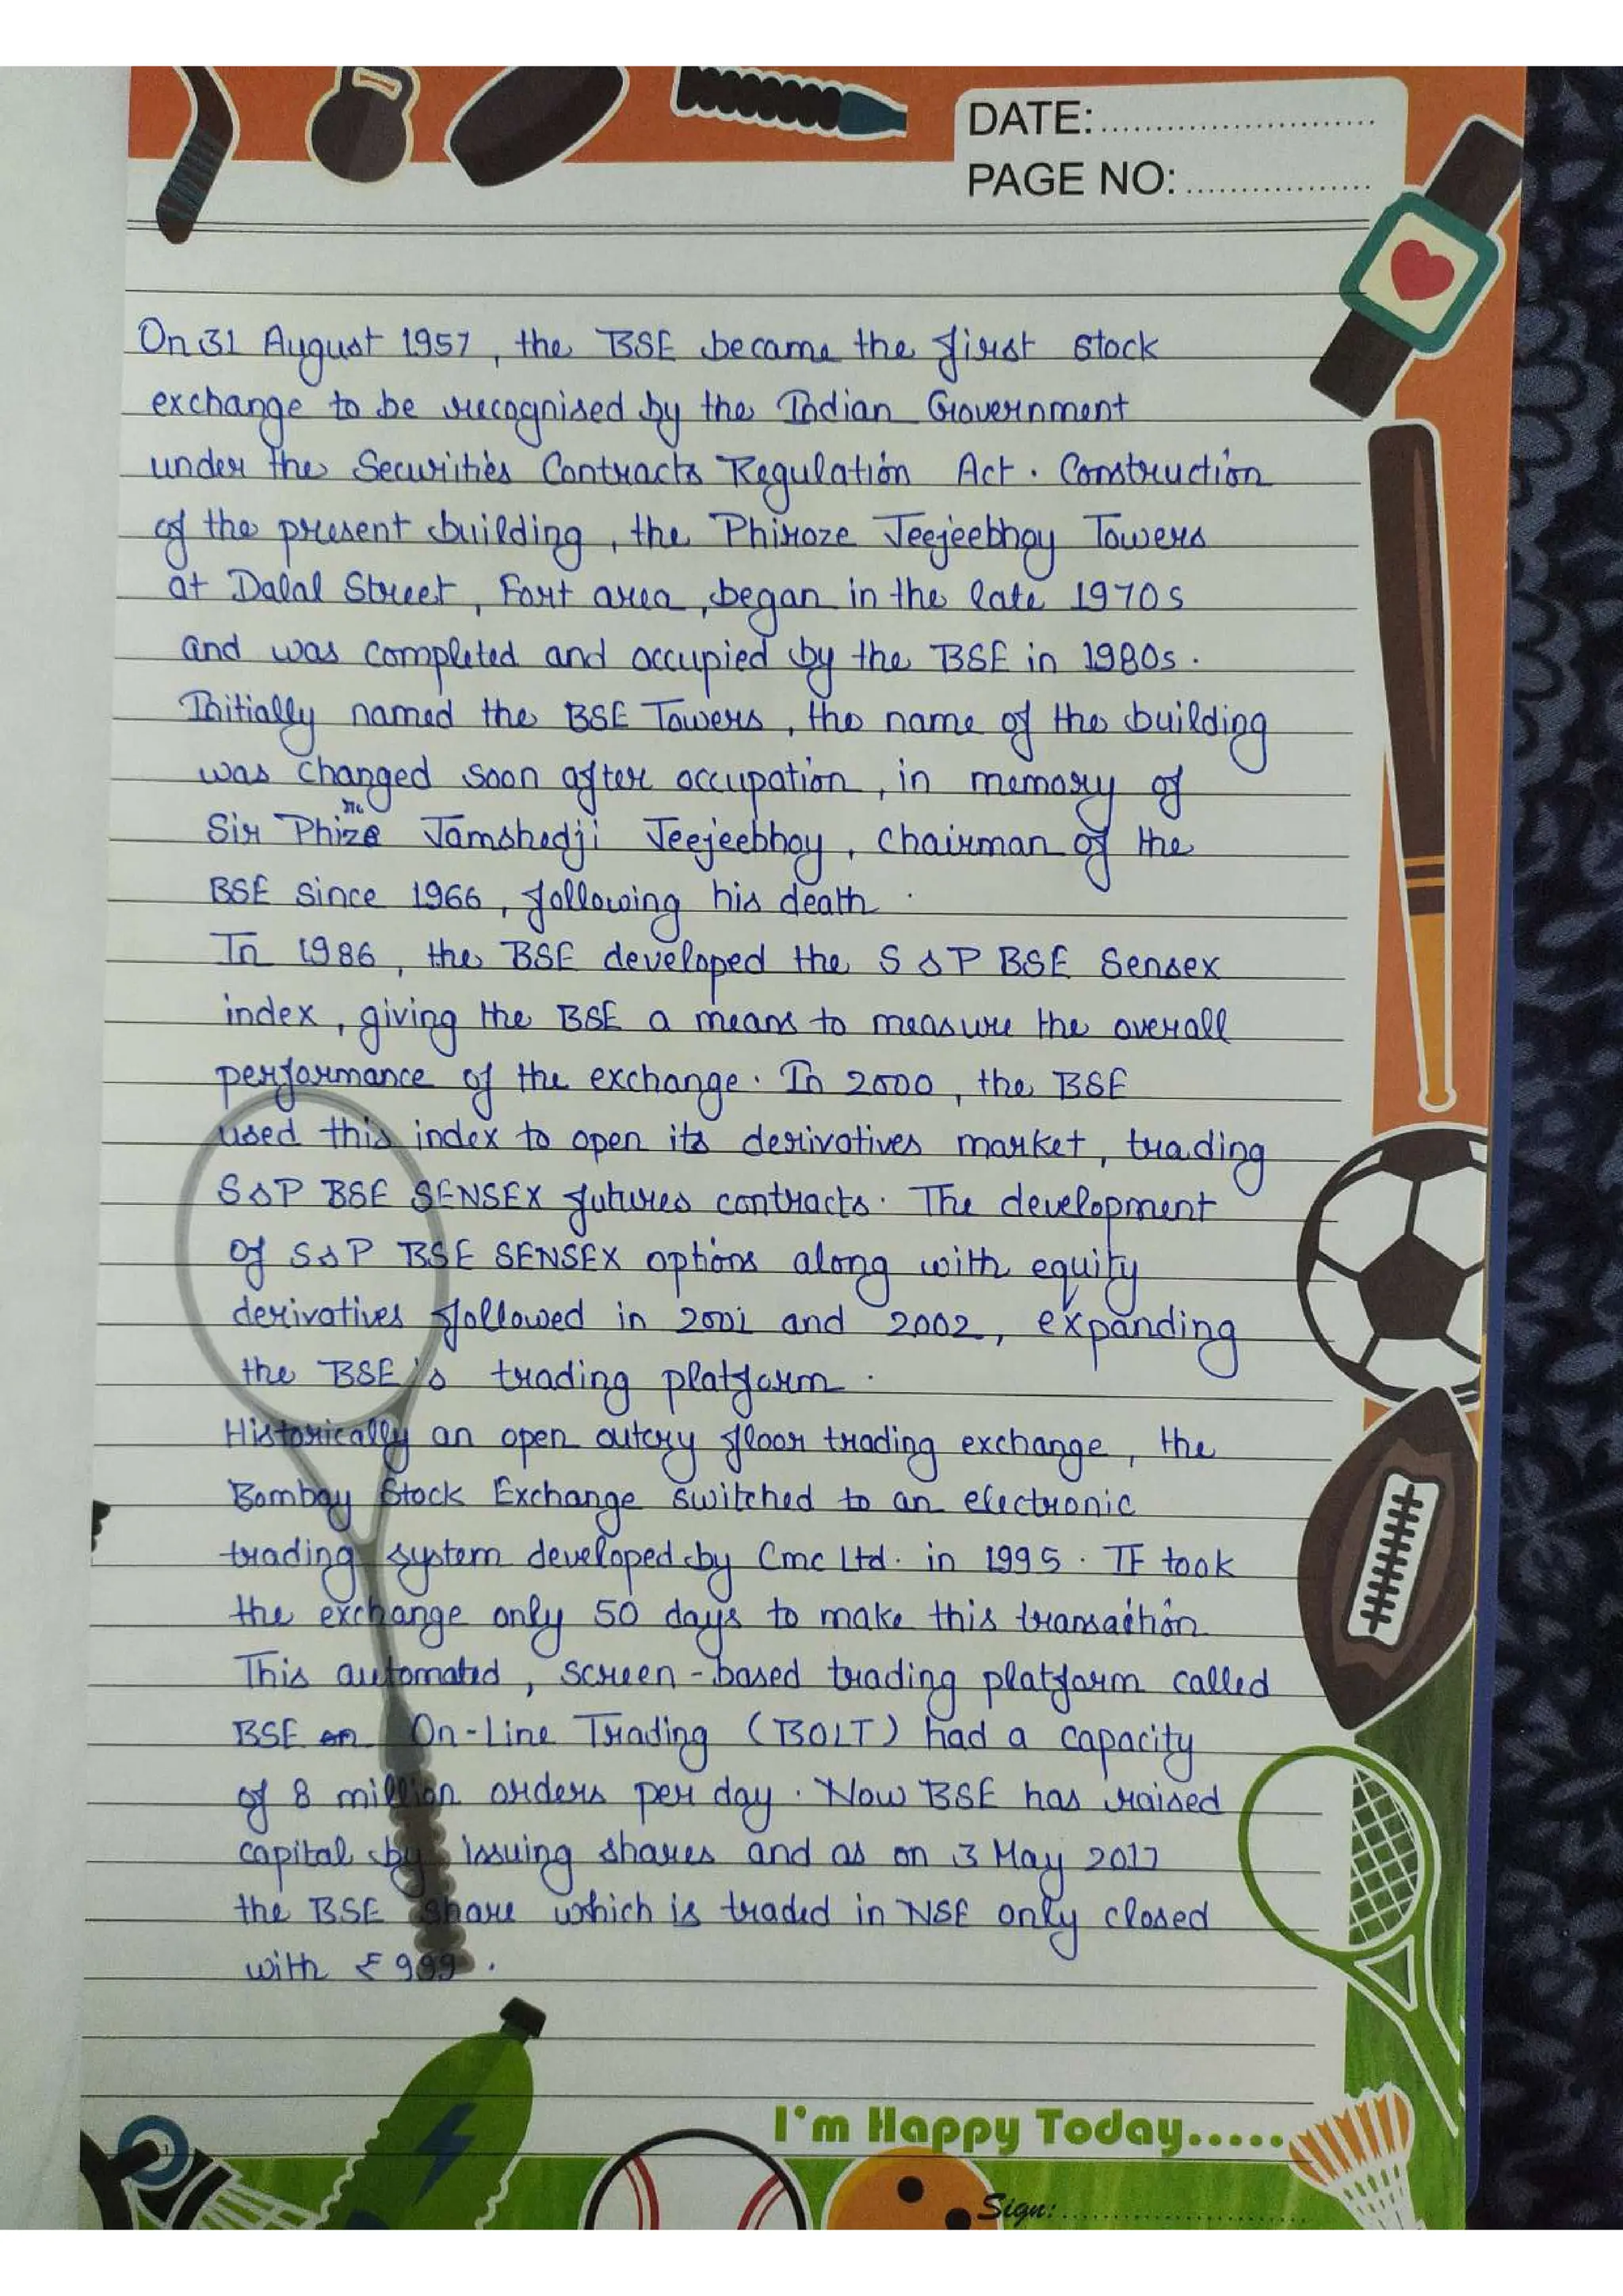 DATE:
PAGE NO:
On 31 August 1957, the BSE became the first stock
exchange to be recognised by the Indian Government
under the Securities Contracts Regulation Act. Construction
of the present building, the Phiroze Jeejeebhoy Towers
at Dalal Street, Fort area, began in the late 1970s
and was completed and occupied by the BSE in 1980s.
Initially named the BSE Towers, the name of the building
was changed soon after occupation, in memory of
Sir Jamshedji Jeejeebhoy, chairman of the
BSE since 1966, following his death.
In 1986, the BSE developed the S & P BSE Sensex
index, giving the BSE a means to measure the overall
performance of the exchange. In 2000, the BSE
used this index to open its derivatives market, trading
S&P BSE SENSEX futures contracts. The development
of S&P BSE SENSEX options along with equity
derivatives followed in 2001 and 2002, expanding
the BSE's trading platform.
Historically an open outcry floor trading exchange, the
Bombay Stock Exchange switched to an electronic
trading system developed by Cmc Ltd. in 1995. It took
the exchange only 50 days to make this transaction
This automated, screen-based trading platform called
BSE On-Line Trading (BOLT) had a capacity
of 8 million orders per day. Now BSE has raised
capital by issuing shares and as on 3 May 2017
the BSE share which is traded in NSE only closed
with ₹999.
I'm Happy Today.....
Sign: